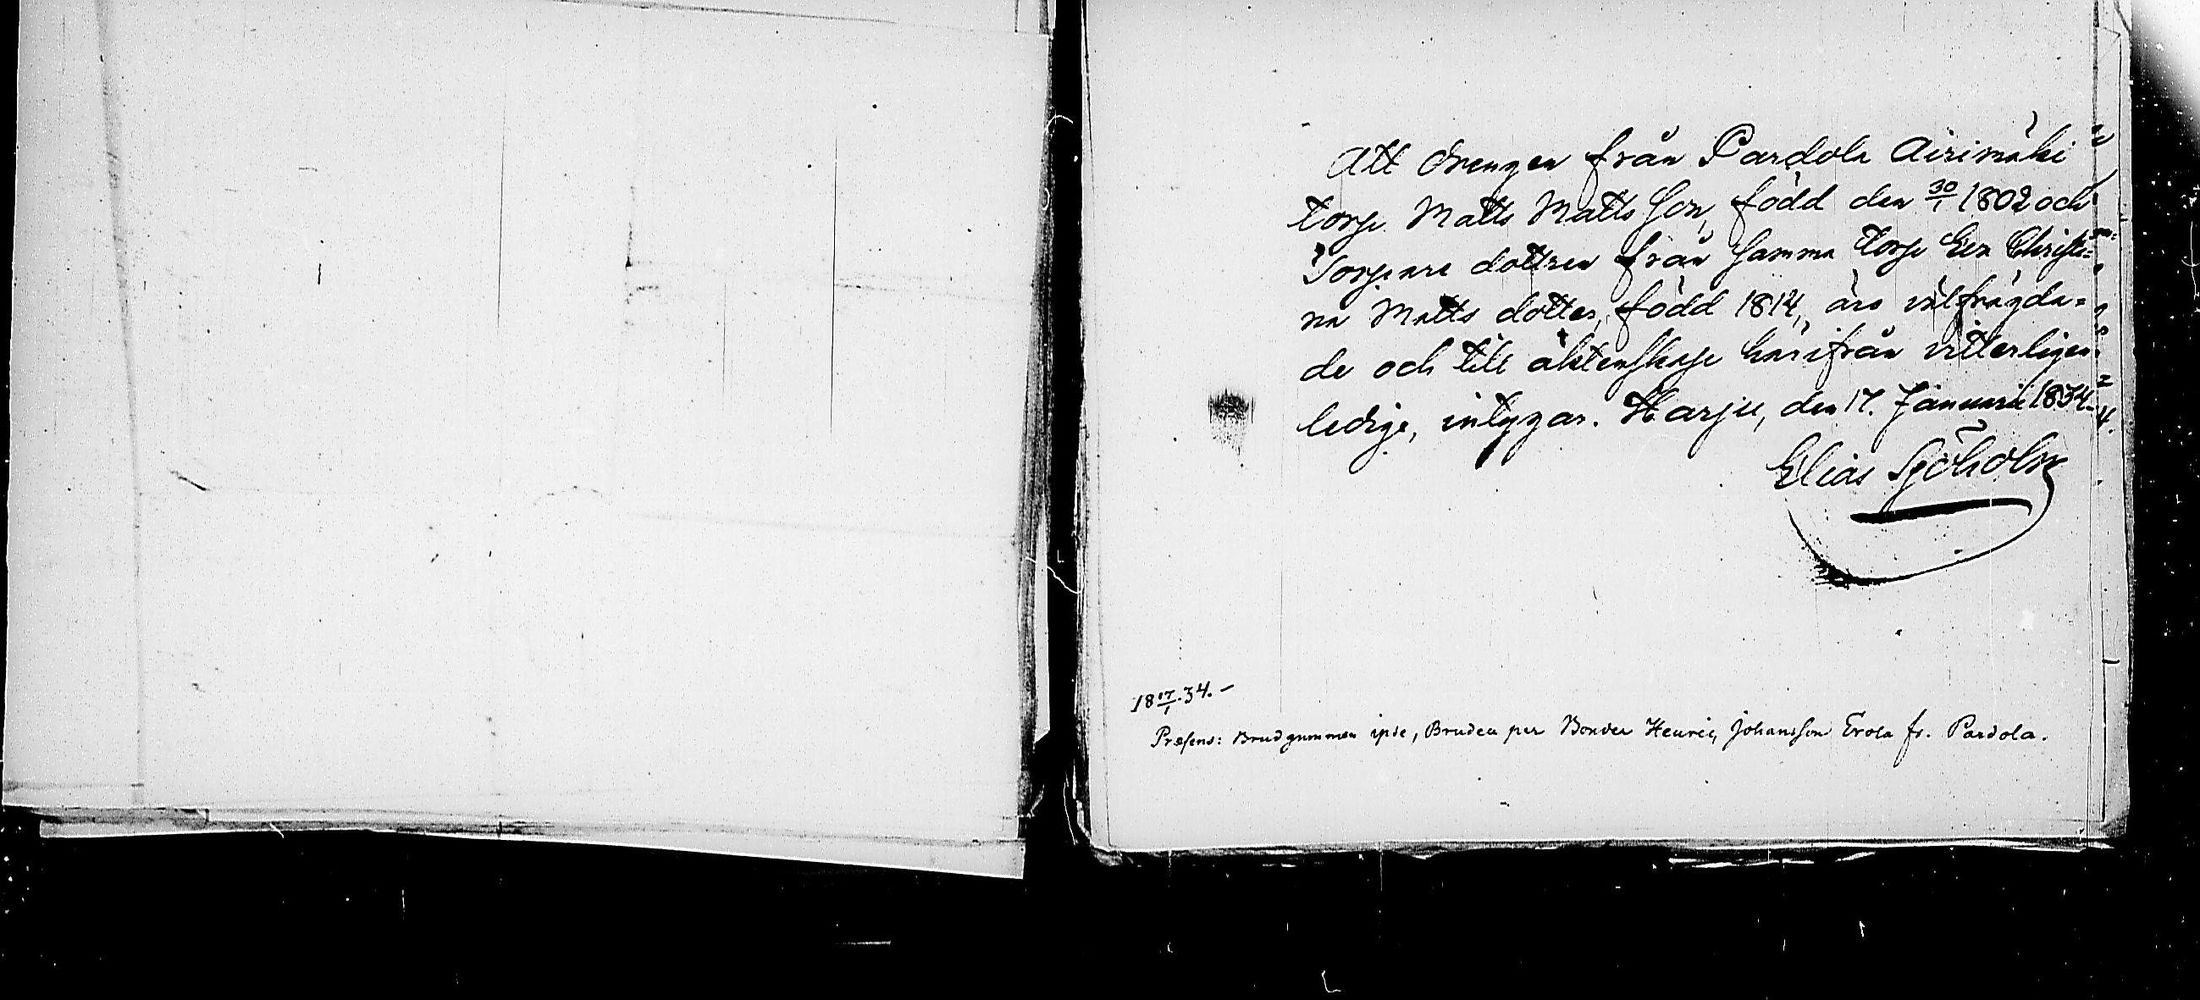 Att drengen från Pardola Airimäki
torp Matts Matts Son, född den 30/1 1802 och
Torpare dottren från Samma torp Eva Christi=
na Matts dotter, född 1814, äro välfrägda=
de och till äktenskap härifrån vitterligen
ledige, intygar. Harju, den 17. Januarii 1834.
Elias Sjöholm
18 17/1 34. –
Præsens: Brudgummen ipse, Bruden per Bonden Henric Johansson Erola fr. Pardola.